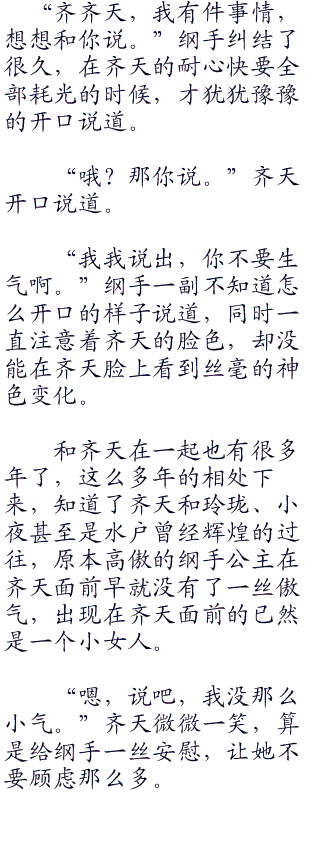 “齐齐天，我有件事情，
想想和你说。”纲手纠结了
很久，在齐天的耐心快要全
部耗光的时候，才犹犹豫豫
的开口说道。
“哦？那你说。”齐天
开口说道。
“我我说出，你不要生
气啊。”纲手一副不知道怎
么开口的样子说道，同时一
直注意着齐天的脸色，却没
能在齐天脸上看到丝毫的神
色变化。
和齐天在一起也有很多
年了，这么多年的相处下
来，知道了齐天和玲珑、小
夜甚至是水户曾经辉煌的过
往，原本高傲的纲手公主在
齐天面前早就没有了一丝傲
气，出现在齐天面前的已然
是一个小女人。
“嗯，说吧，我没那么
小气。”齐天微微一笑，算
是给纲手一丝安慰，让她不
要顾虑那么多。